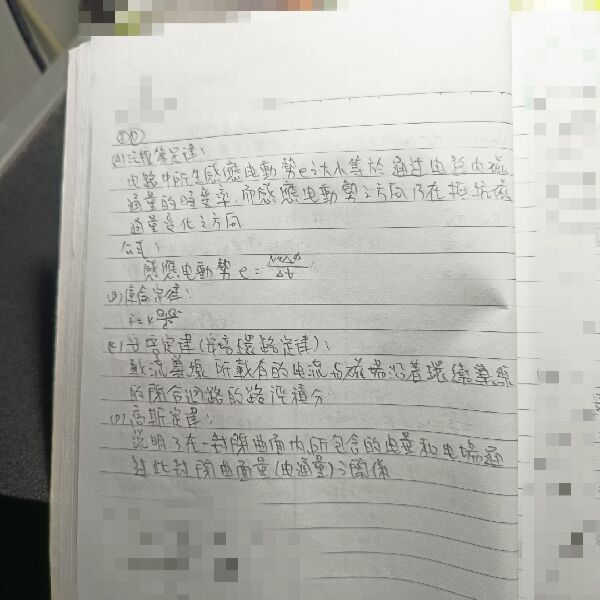 (A)法拉第定律:
電路中所生感應電動勢e之大小等於通過電路內磁
通量的時變率,而感應電動勢之方向乃在抵抗磁
通量變化之方向
公式:
感應電動勢 e = N×ΔΦ/Δt
(B)庫倫定律:
(C)安培定律(安培環路定律):
載流導線所載有的電流與磁場沿著環繞導線
的閉合迴路的路徑積分
(D)高斯定律:
說明了在一封閉曲面內所包含的電量和電場通
過此封閉曲面量(電通量)之關係